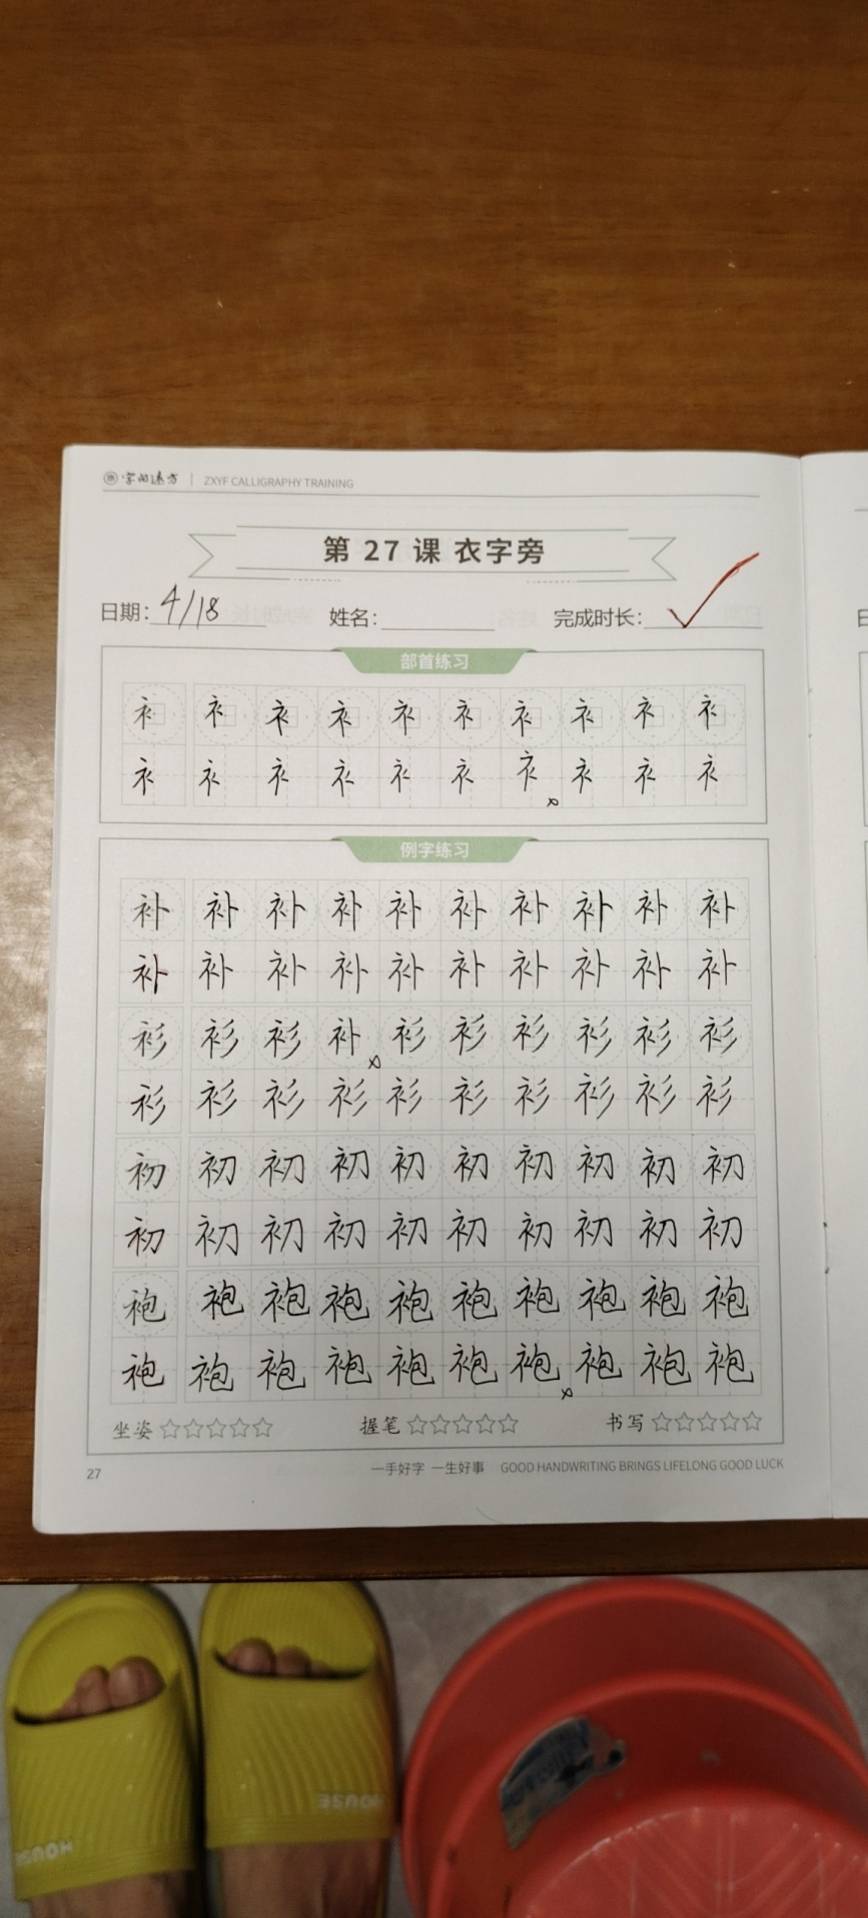 字向远方 | ZXYF CALLIGRAPHY TRAINING
第 27 课 衣字旁
日期: 4/18 姓名: 完成时长:
部首练习
衤 衤 衤 衤 衤 衤 衤 衤 衤 衤
衤 衤 衤 衤 衤 衤 衤 衤 衤 衤
例字练习
补 补 补 补 补 补 补 补 补 补
补 补 补 补 补 补 补 补 补 补
衫 衫 衫 补 衫 衫 衫 衫 衫 衫
衫 衫 衫 衫 衫 衫 衫 衫 衫 衫
初 初 初 初 初 初 初 初 初 初
初 初 初 初 初 初 初 初 初 初
袍 袍 袍 袍 袍 袍 袍 袍 袍 袍
袍 袍 袍 袍 袍 袍 袍 袍 袍 袍
坐姿☆☆☆☆☆ 握笔☆☆☆☆☆ 书写☆☆☆☆☆
27 一手好字 一生好事 GOOD HANDWRITING BRINGS LIFELONG GOOD LUCK
HOUSE HOUSE